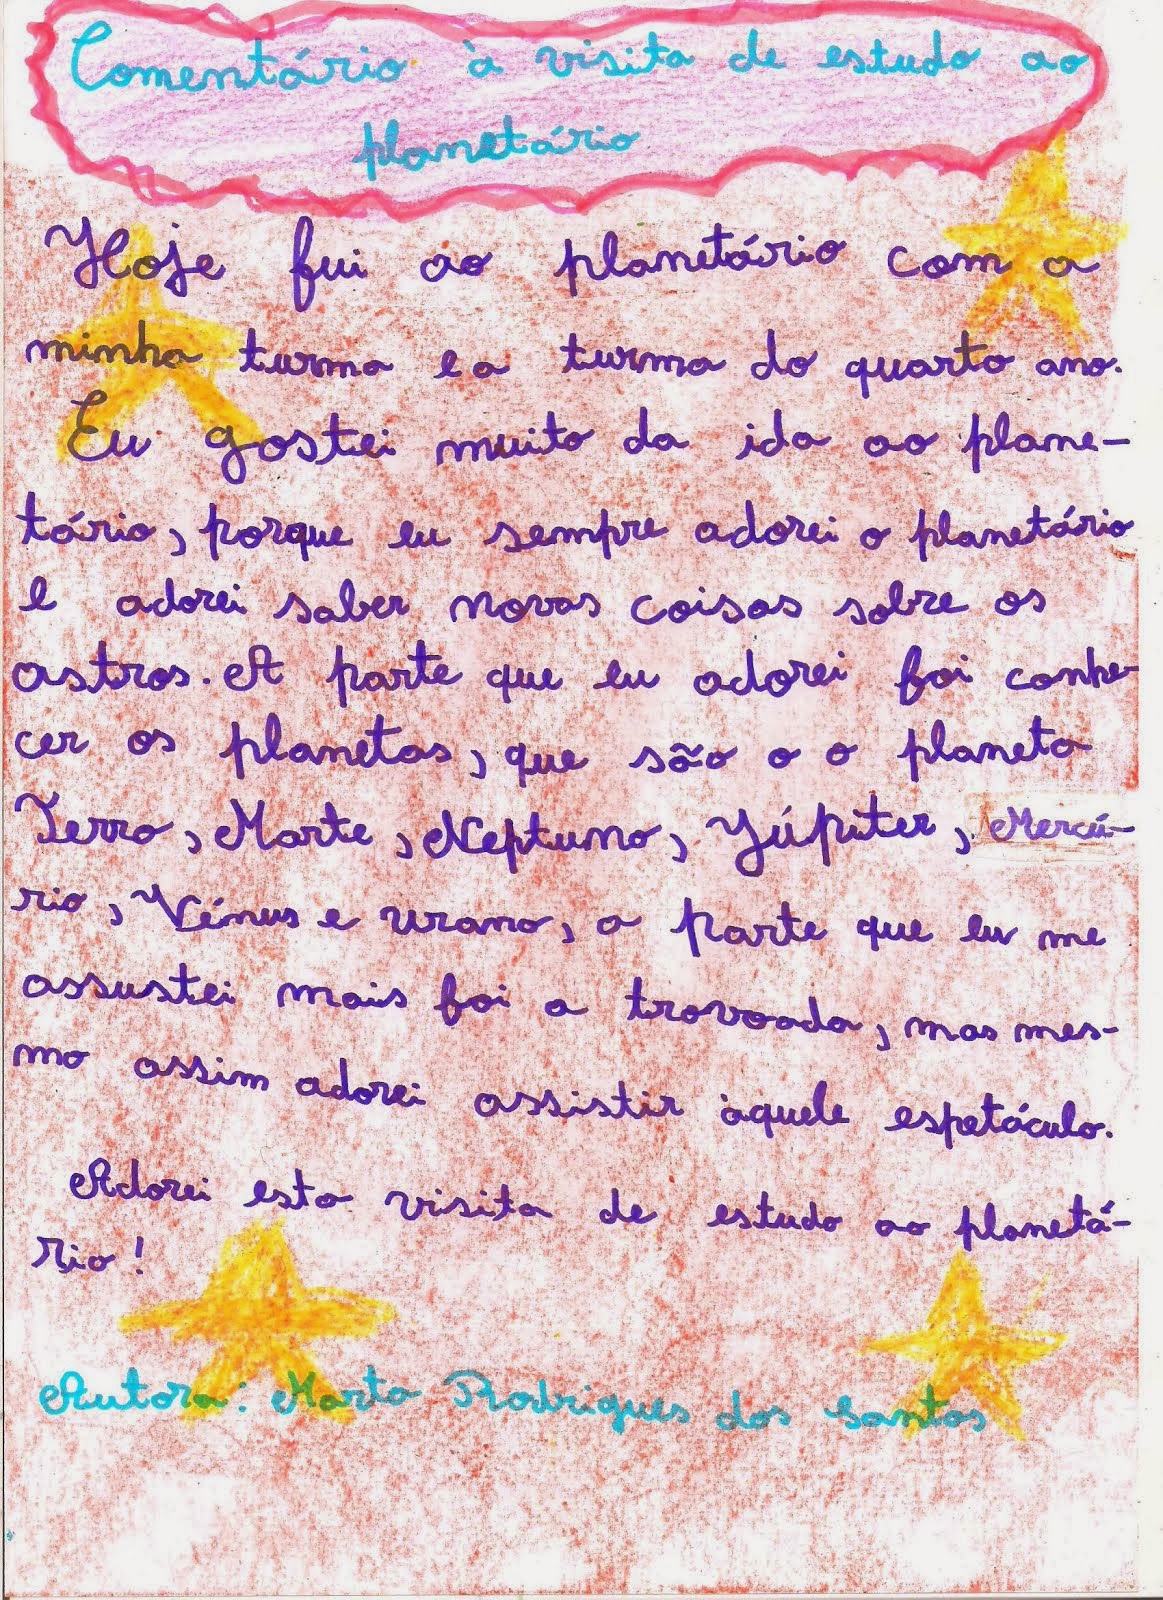 Comentário à visita de estudo ao
planetário
Hoje fui ao planetário com a
minha turma e a turma do quarto ano.
Eu gostei muito da ida ao plane-
tário, porque eu sempre adorei o planetário
e adorei saber novas coisas sobre os
astros. A parte que eu adorei foi conhe-
cer os planetas, que são o o planeta
Terra, Marte, Neptuno, Júpiter, Mercú-
rio, Vénus e urano, a parte que eu me
assustei mais foi a trovoada, mas mes-
mo assim adorei assistir àquele espetáculo.
Adorei esta visita de estudo ao planetá-
rio!
Autora: Marta Rodrigues dos Santos